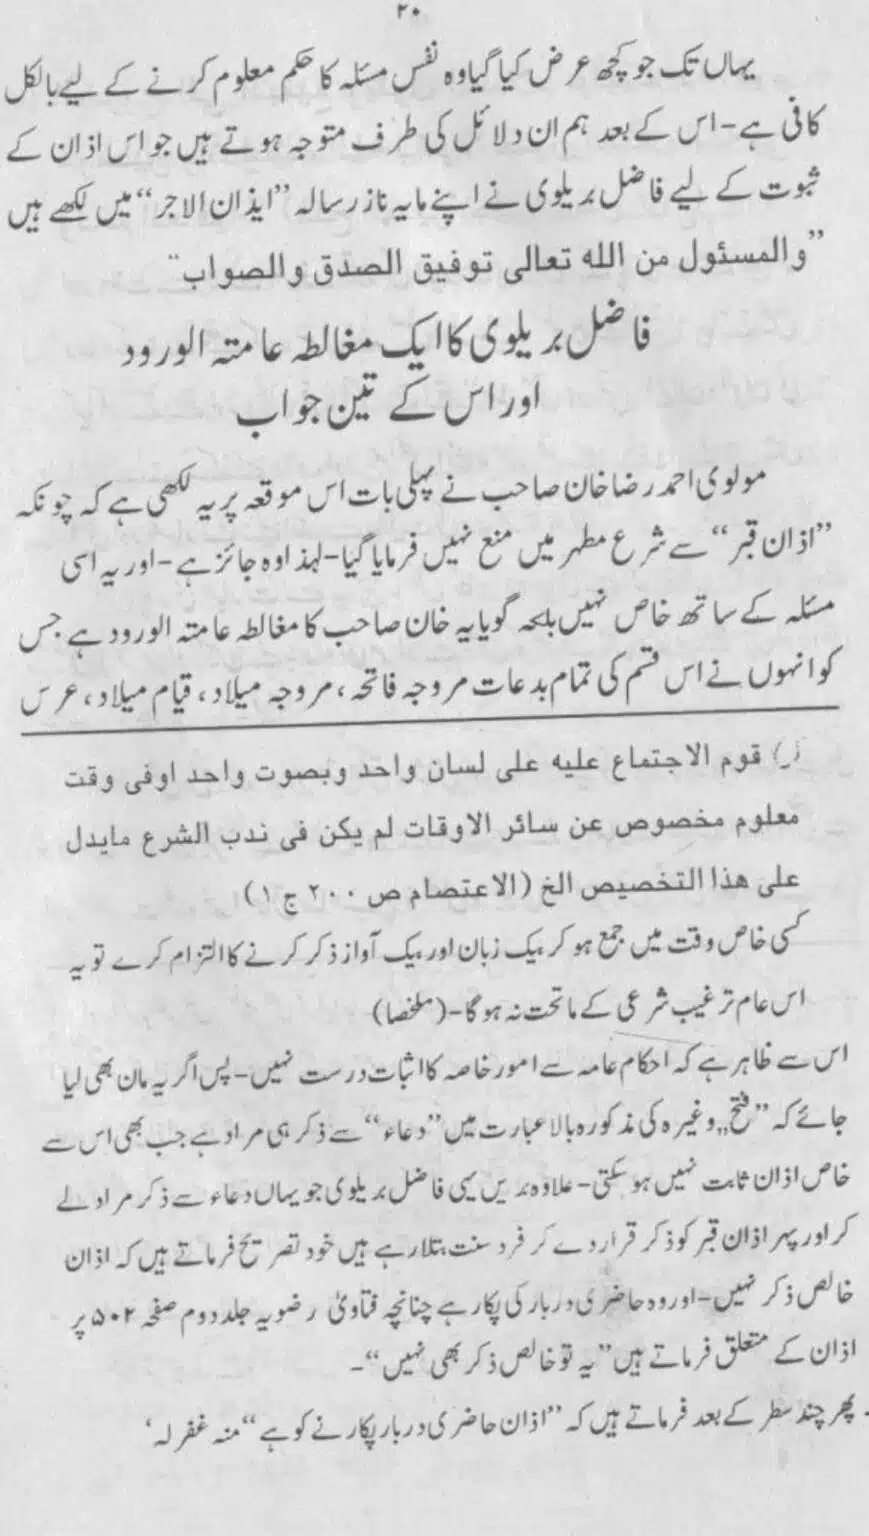 ۲۰
یہاں تک جو کچھ عرض کیا گیا وہ نفس مسئلہ کا حکم معلوم کرنے کے لیے بالکل
کافی ہے - اس کے بعد ہم ان دلائل کی طرف متوجہ ہوتے ہیں جو اس اذان کے
ثبوت کے لیے فاضل بریلوی نے اپنے مایہ ناز رسالہ ”ایذان الاجر“ میں لکھے ہیں
”والمسئول من الله تعالی توفیق الصدق والصواب“
فاضل بریلوی کا ایک مغالطہ عامتہ الورود
اور اس کے تین جواب
مولوی احمد رضا خان صاحب نے پہلی بات اس موقعہ پر یہ لکھی ہے کہ چونکہ
”اذان قبر“ سے شرع مطہر میں منع نہیں فرمایا گیا - لہذا وہ جائز ہے - اور یہ اسی
مسئلہ کے ساتھ خاص نہیں بلکہ گویا یہ خان صاحب کا مغالطہ عامتہ الورود ہے جس
کو انہوں نے اس قسم کی تمام بدعات مروجہ فاتحہ، مروجہ میلاد، قیام میلاد، عرس
قوم الاجتماع علیه علی لسان واحد وبصوت واحد اوفی وقت
معلوم مخصوص عن سائر الاوقات لم یکن فی ندب الشرع مایدل
علی هذا التخصیص الخ (الاعتصام ص ۲۰۰ ج ۱)
کسی خاص وقت میں جمع ہو کر بیک زبان اور بیک آواز ذکر کرنے کا التزام کرے تو یہ
اس عام ترغیب شرعی کے ماتحت نہ ہوگا - (ملخصا)
اس سے ظاہر ہے کہ احکام عامہ سے امور خاصہ کا اثبات درست نہیں - پس اگر یہ مان بھی لیا
جائے کہ ”فتح„ وغیرہ کی مذکورہ بالا عبارت میں ”دعاء“ سے ذکر ہی مراد ہے جب بھی اس سے
خاص اذان ثابت نہیں ہو سکتی - علاوہ ندیں یہی فاضل بریلوی جو یہاں دعاء سے ذکر مراد لے
کر اور پہر اذان قبر کو ذکر قرار دے کر فرد سنت بتلا رہے ہیں خود تصریح فرماتے ہیں کہ اذان
خالص ذکر نہیں - اور وہ حاضری دربار کی پکار ہے چنانچہ فتاویٰ رضویہ جلد دوم صفحہ ۵۰۲ پر
اذان کے متعلق فرماتے ہیں ”یہ تو خالص ذکر بھی نہیں“ -
پھر چند سطر کے بعد فرماتے ہیں کہ ”اذان حاضری دربار پکارنے کو ہے“ منہ غفرلہ‘